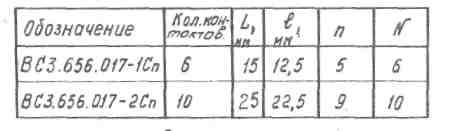 Обозначение Кол.кон-тактов L, мм ℓ, мм n N
ВС3.656.017-1Сп 6 15 12,5 5 6
ВС3.656.017-2Сп 10 25 22,5 9 10